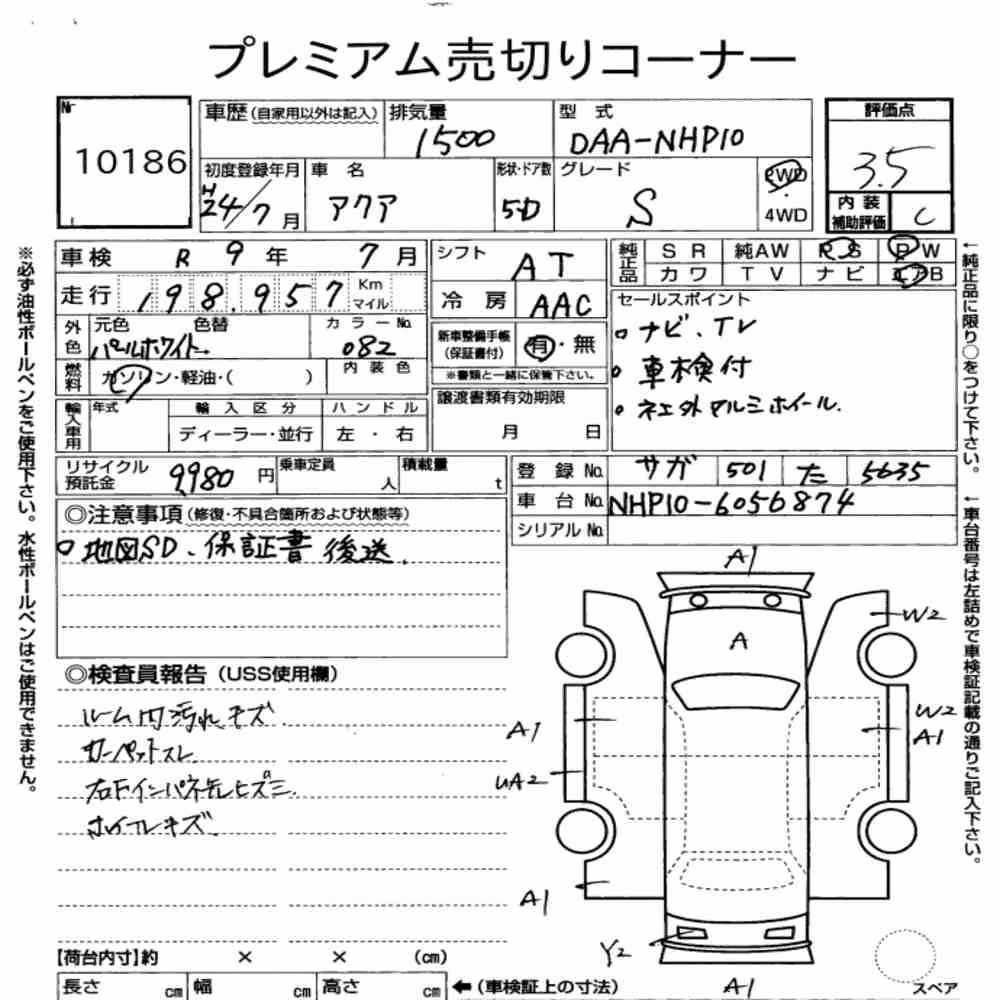 プレミアム売切りコーナー
Nr 10186
車歴(自家用以外は記入) 排気量 1500 型式 DAA-NHP10
評価点 3.5
初度登録年月 H24/7月 車名 アクア 形状・ドア数 5D グレード S 2WD・4WD
内装補助評価 C
車検 R 9年 7月 シフト AT
純正品 SR 純AW PS PW
カワ TV ナビ エアB
走行 198.957 Km マイル 冷房 AAC
セールスポイント
ナビ.TV
車検付
社外アルミホイール.
外色 元色 色替 パールホワイト カラーNo. 082
新車整備手帳(保証書付) 有・無
※書類と一緒に保管下さい。
燃料 ガソリン・軽油・( ) 内装色
譲渡書類有効期限
月 日
輸入車用 年式 輸入区分 ハンドル
ディーラー・並行 左・右
リサイクル預託金 9,980円 乗車定員 人 積載量 t
登録No. サガ 501 た 5635
車台No. NHP10-6056874
シリアルNo.
◎注意事項(修復・不具合箇所および状態等)
地図SD、保証書後送.
◎検査員報告(USS使用欄)
ルーム内汚れキズ
カーペットスレ
右Fインパネ乱ヒズミ
ホイールキズ
A1
A
W2
A1
W2
A1
UA2
A1
Y2
A1
スペア
【荷台内寸】約 × × (cm)
長さ cm 幅 cm 高さ cm ←(車検証上の寸法)
※必ず油性ボールペンをご使用下さい。水性ボールペンはご使用できません。
←純正品に限り○をつけて下さい。
←車台番号は左詰めで車検証記載の通りご記入下さい。